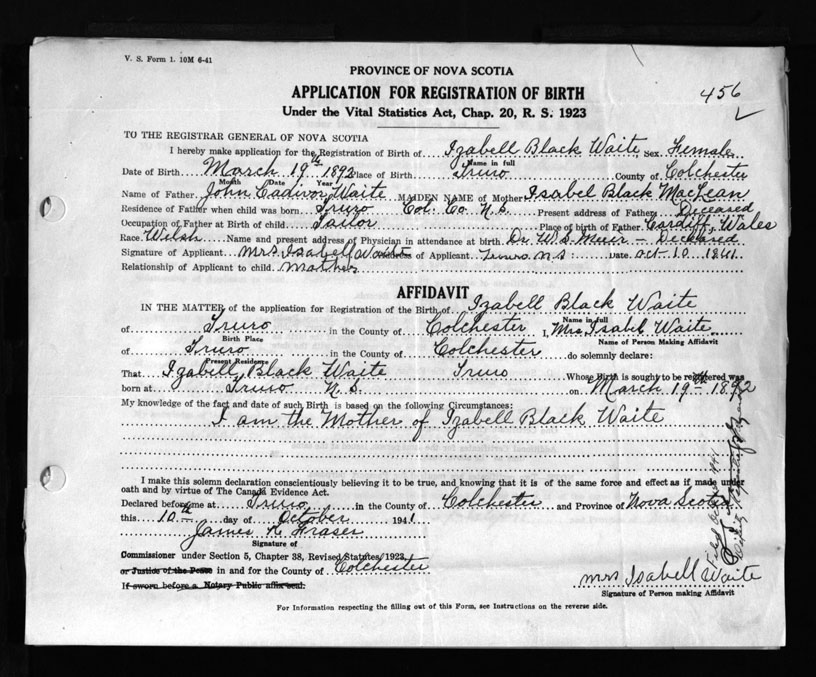 V. S. Form 1. 10M 6-41
PROVINCE OF NOVA SCOTIA
APPLICATION FOR REGISTRATION OF BIRTH
456
Under the Vital Statistics Act, Chap. 20, R. S. 1923
TO THE REGISTRAR GENERAL OF NOVA SCOTIA
I hereby make application for the Registration of Birth of Izabell Black Waite, Sex Female
Name in full
Date of Birth March 19th 1892 Place of Birth Truro County of Colchester
Month Date Year
Name of Father John Cadivor Waite MAIDEN NAME of Mother Isabel Black MacLean
Residence of Father when child was born Truro Col. Co N.S. Present address of Father Deceased
Occupation of Father at Birth of child Tailor Place of birth of Father Cardiff, Wales
Race Welsh Name and present address of Physician in attendance at birth Dr. W. S. Muir - Deceased
Signature of Applicant Mrs Isabell Waite Address of Applicant Truro N.S. Date Oct-10 1941
Relationship of Applicant to child Mother
AFFIDAVIT
IN THE MATTER of the application for Registration of the Birth of Izabell Black Waite
Name in full
of Truro in the County of Colchester I, Mrs Isabel Waite
Birth Place Name of Person Making Affidavit
of Truro in the County of Colchester do solemnly declare:
Present Residence
That Izabell Black Waite Truro Whose Birth is sought to be registered was
born at Truro N.S. on March 19th 1892
My knowledge of the fact and date of such Birth is based on the following Circumstances:
I am the Mother of Izabell Black Waite
I make this solemn declaration conscientiously believing it to be true, and knowing that it is of the same force and effect as if made under
oath and by virtue of The Canada Evidence Act.
Declared before me at Truro in the County of Colchester and Province of Nova Scotia
this 10th day of October 1941
James K. Fraser
Signature of
Commissioner under Section 5, Chapter 38, Revised Statutes, 1923,
or Justice of the Peace in and for the County of Colchester
If sworn before a Notary Public affix seal.
Mrs Isabell Waite
Signature of Person making Affidavit
For Information respecting the filling out of this Form, see Instructions on the reverse side.